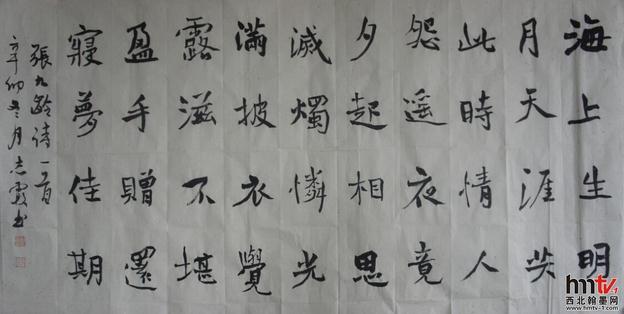 海上生明
月天涯共
此時情人
怨遥夜竟
夕起相思
滅燭憐光
滿披衣覺
露滋不堪
盈手贈還
寢夢佳期
張九齡诗一首
辛卯冬月志霞书
hmtv-1
西北翰墨网
www.hmtv-1.com